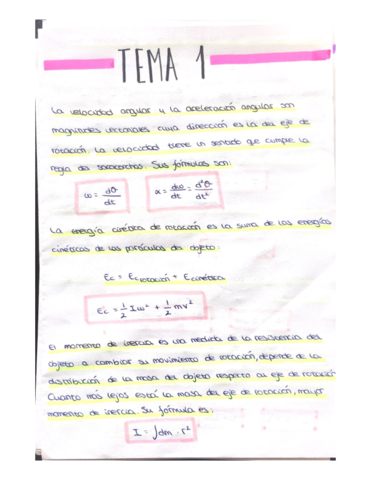 TEMA 1
La velocidad angular y la aceleración angular son
magnitudes vectoriales cuya dirección es la del eje de
rotación. La velocidad tiene un sentido que cumple la
regla del sacacorchos. Sus fórmulas son:
ω = dθ/dt    α = dω/dt = d²θ/dt²
La energía cinética de rotación es la suma de las energías
cinéticas de las partículas del objeto:
Ec = Ec rotación + Ecinética
Ec = 1/2 Iω² + 1/2 mv²
El momento de inercia es una medida de la resistencia del
objeto a cambiar su movimiento de rotación, depende de la
distribución de la masa del objeto respecto al eje de rotación
Cuanto más lejos está la masa del eje de rotación, mayor
momento de inercia. Su fórmula es:
I = ∫dm · r²